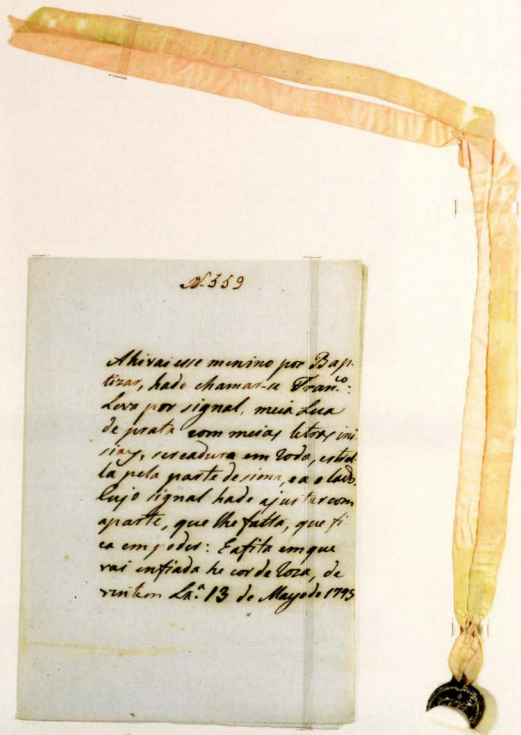 N. 559
Ahi vai esse menino por Bap-
tizar, hade chamar-se Franco:
Leva por signal, meia Lua
de prata com meias letras ini
siaes, sercadura em roda, estrel
la pela parte de sima, e a o lado
Cujo signal hade ajustar com
aparte, que lhe falta, que fi
ca em poder: E a fita em que
vai enfiada he cor de roza, de
vintem Lxa. 13 de Mayo de 1795